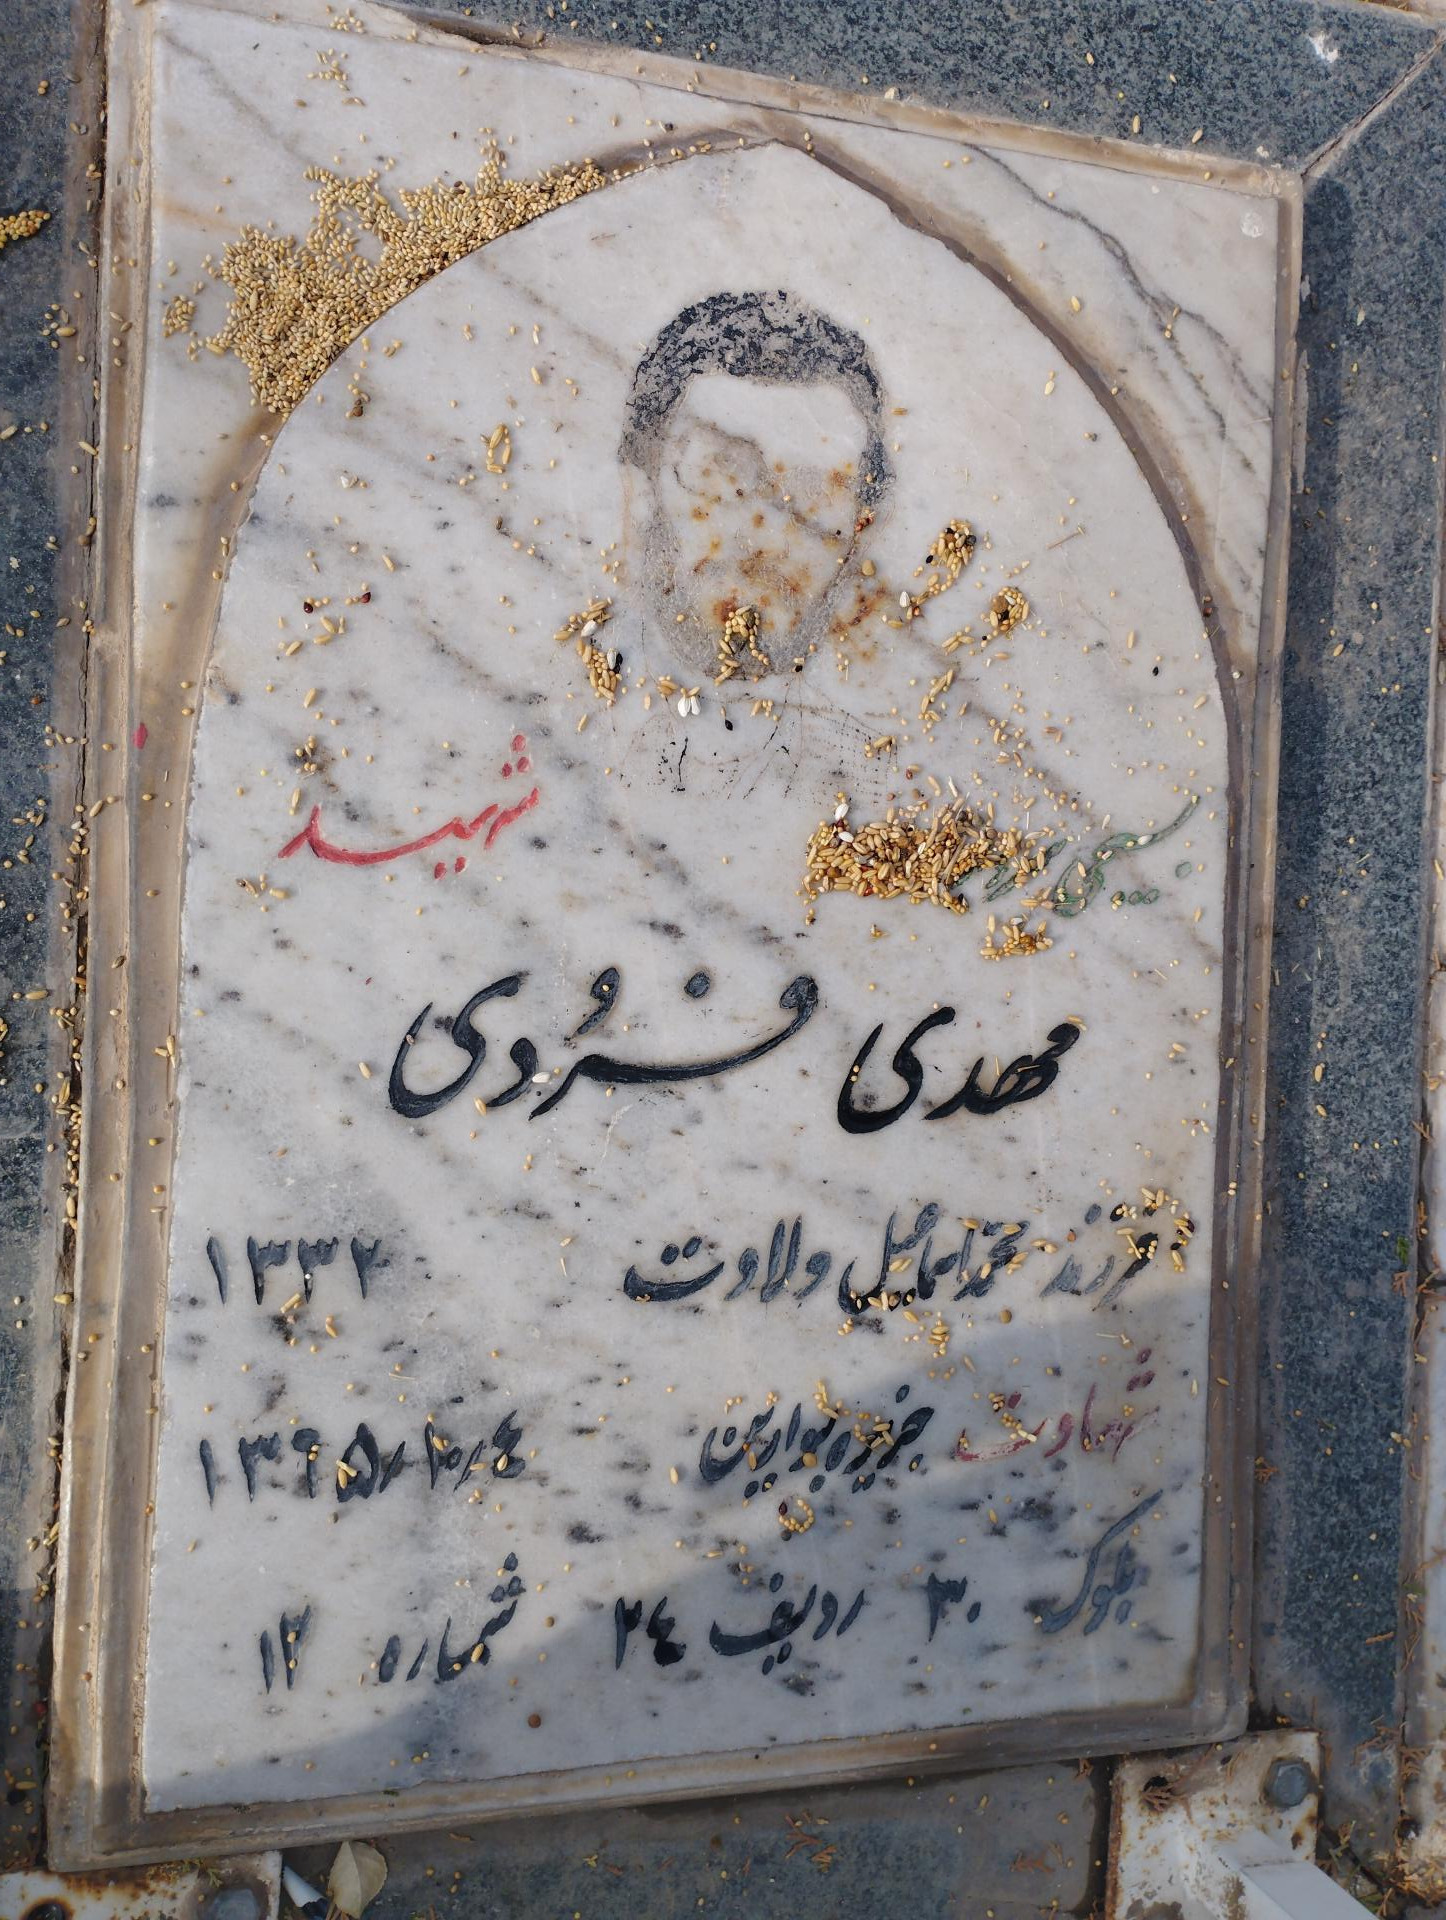 بسیجی شهید
مهدی فرودی
فرزند محمداسماعیل ولادت ۱۳۳۲
شهادت جزیره بوارین ۱۳۶۵/۱۰/۴
بلوک ۳۰ ردیف ۲۴ شماره ۱۲